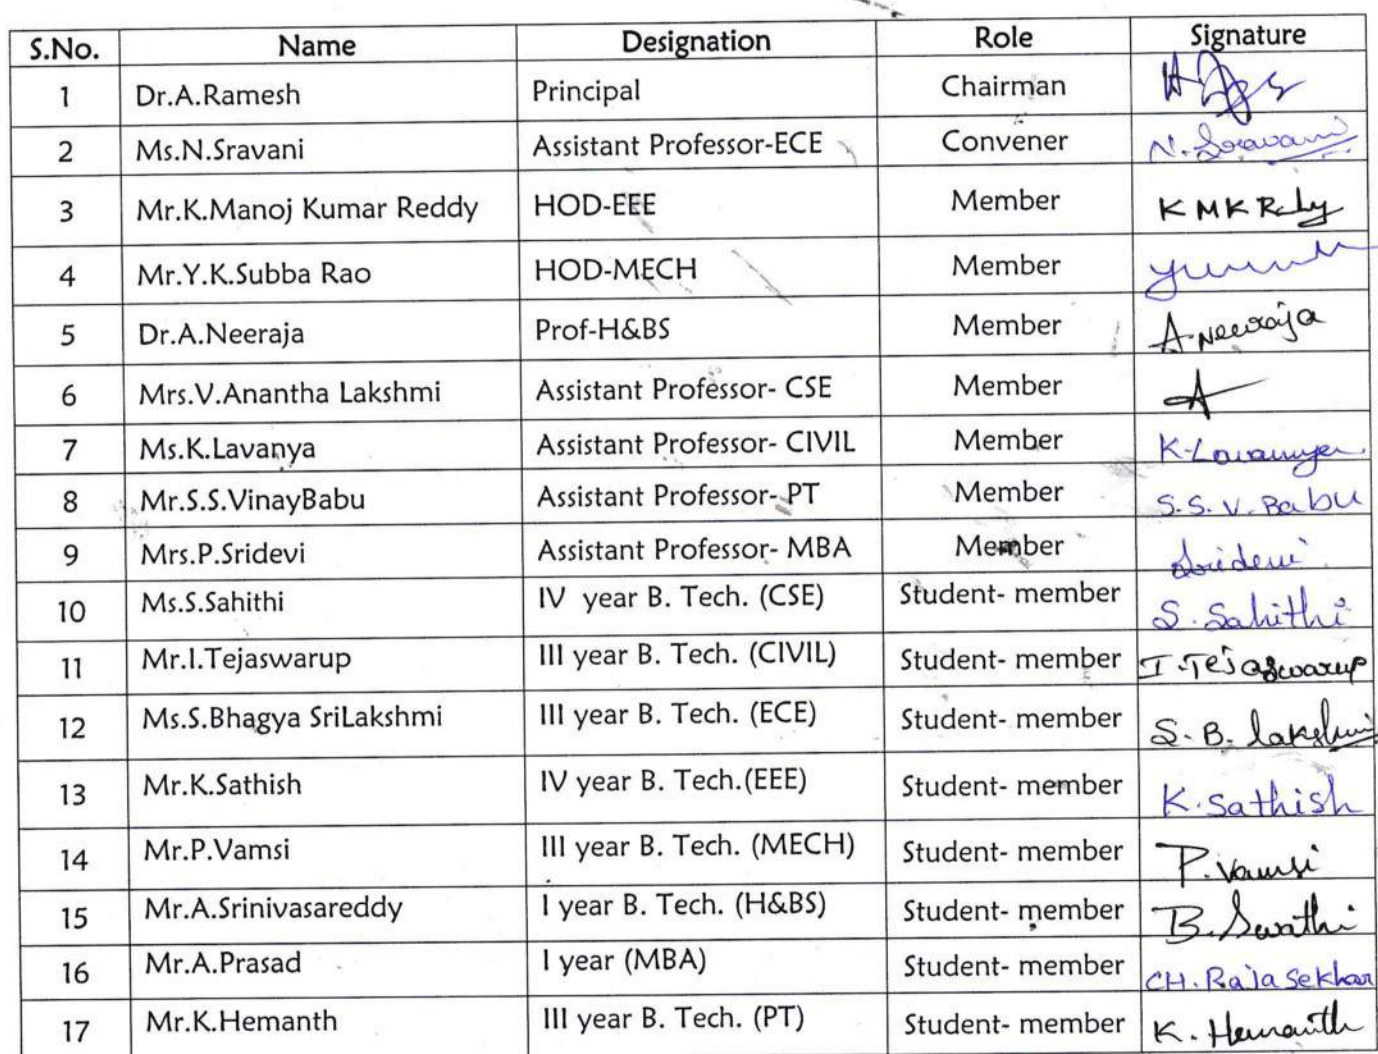 S.No. Name Designation Role Signature
1 Dr.A.Ramesh Principal Chairman
2 Ms.N.Sravani Assistant Professor-ECE Convener N. Sravani
3 Mr.K.Manoj Kumar Reddy HOD-EEE Member K M K Reddy
4 Mr.Y.K.Subba Rao HOD-MECH Member
5 Dr.A.Neeraja Prof-H&BS Member A. Neeraja
6 Mrs.V.Anantha Lakshmi Assistant Professor- CSE Member
7 Ms.K.Lavanya Assistant Professor- CIVIL Member K. Lavanya
8 Mr.S.S.VinayBabu Assistant Professor- PT Member S. S. V. Babu
9 Mrs.P.Sridevi Assistant Professor- MBA Member Sridevi
10 Ms.S.Sahithi IV year B. Tech. (CSE) Student- member S. Sahithi
11 Mr.I.Tejaswarup III year B. Tech. (CIVIL) Student- member I. Tejaswarup
12 Ms.S.Bhagya SriLakshmi III year B. Tech. (ECE) Student- member S. B. lakshmi
13 Mr.K.Sathish IV year B. Tech.(EEE) Student- member K. Sathish
14 Mr.P.Vamsi III year B. Tech. (MECH) Student- member P. Vamsi
15 Mr.A.Srinivasareddy I year B. Tech. (H&BS) Student- member B. Swathi
16 Mr.A.Prasad I year (MBA) Student- member CH. Raja Sekhar
17 Mr.K.Hemanth III year B. Tech. (PT) Student- member K. Hemanth